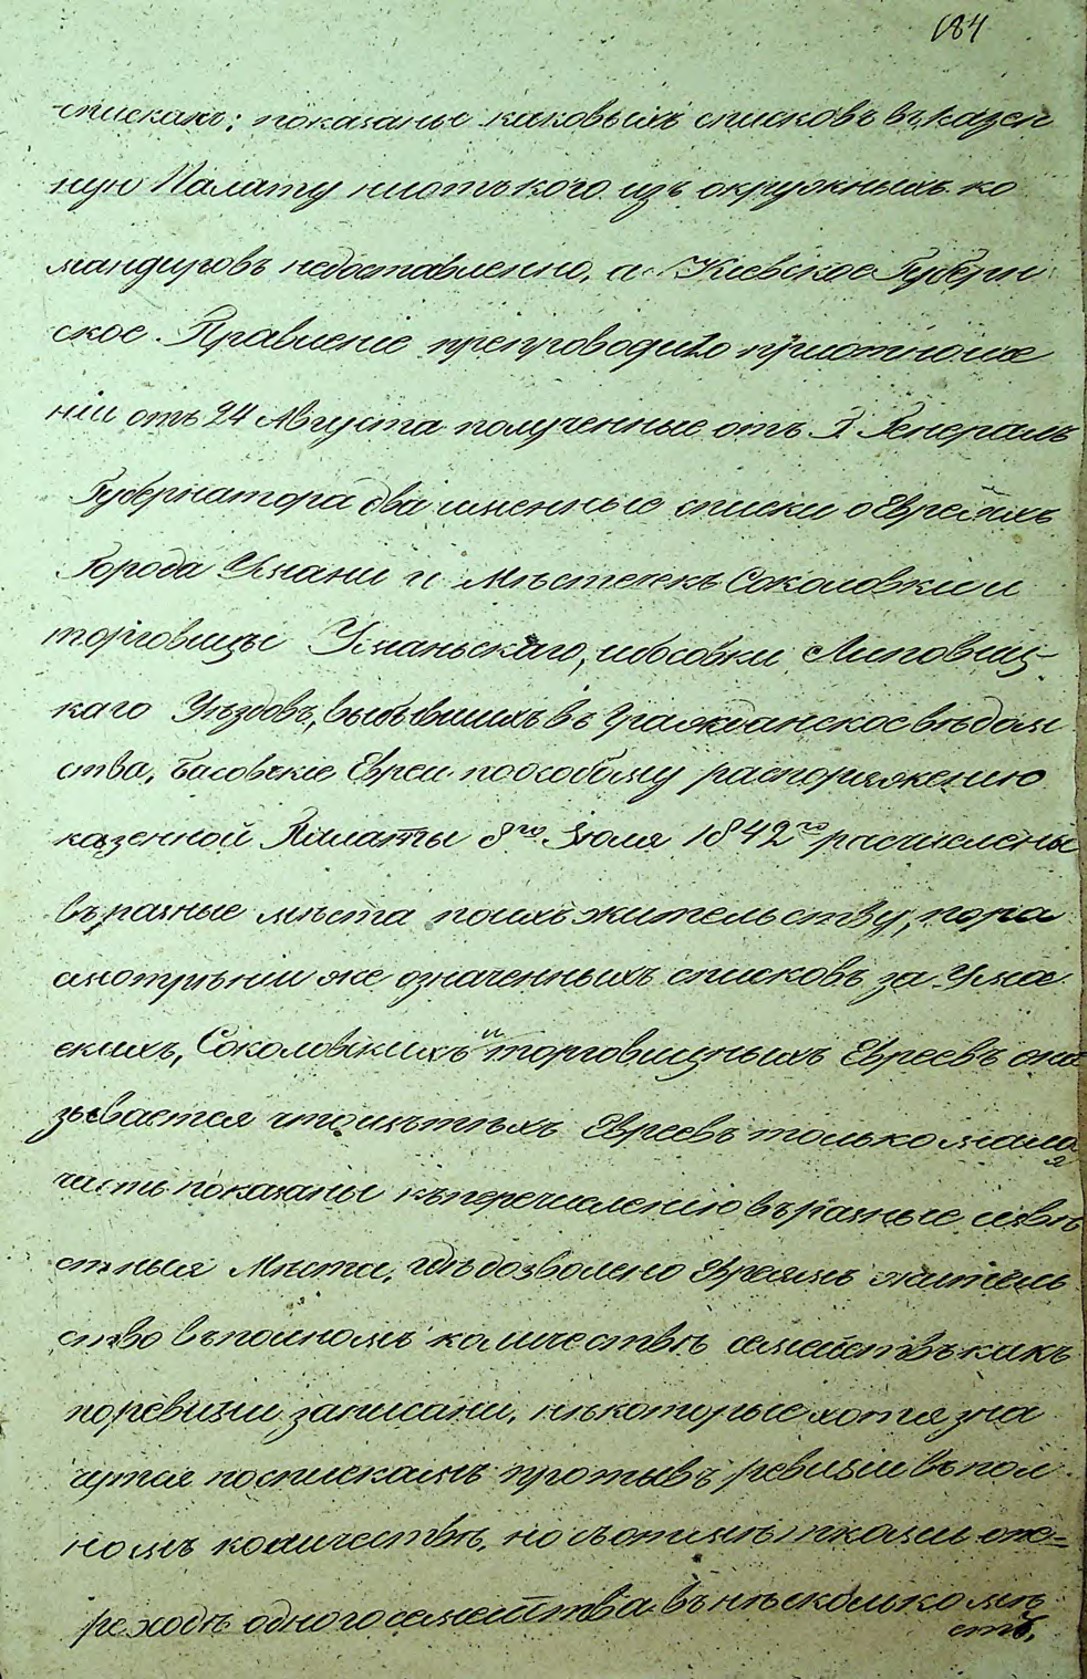 184
спискам: показаные каковыихъ списковъ въ казен
ную Палату ниотъ кого изъ окружныхъ ко
мандировъ недоставленно, а Киевское Губерн
ское Правленіе препроводило приотноше
ніи отъ 24 Августа полученные отъ Г. Генералъ
Губернатора два именные списки о Евреяхъ
Города Умани и Мѣстечекъ Соколовки и
торговицы Уманьскаго, Липовец-
каго Уѣздовъ, выбывшихъ въ Гражданское вѣдом
ства, Басовскіе Евреи поособому распоряженію
казенной Палаты 8го Іюля 1842го расчислены
въ разные мѣста поихъ жительству, пора
смотрѣніи же означенныхъ списковъ за Уман
скихъ, Соколовскихъ и торговицныхъ Евреевъ ока
зывается что Евреевъ только малая
часть показаны къ перечисленію въ разные извѣ
стныя Мѣста, гдѣ дозволено Евреямъ житель
ство въ полномъ количествѣ семействъ какъ
поревизіи записани, нѣкоторые хотя зна
чутся поспискамъ протывъ ревизіи въ пол
номъ количествѣ, но съотмѣтками опе-
реходѣ одного семейства въ нѣсколько мѣ
стъ,